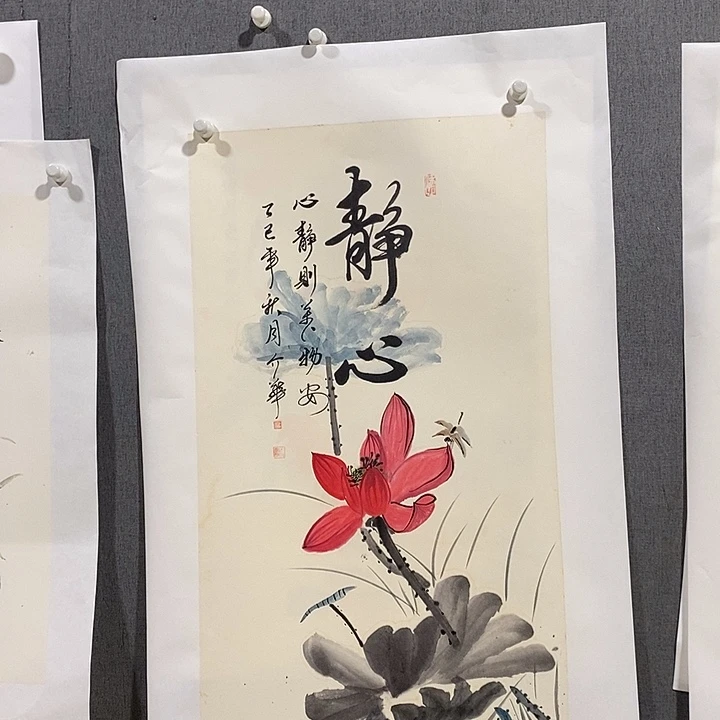 静心
心静则万物安
丁巳年秋月介华